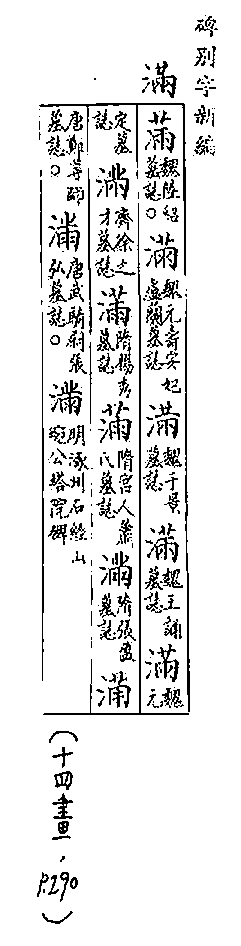 碑別字新編
滿
滿魏陸紹墓誌。滿魏元壽安妃盧蘭墓誌滿魏于景墓誌滿魏王誦墓誌滿魏元
定墓誌滿齊徐之才墓誌滿隋楊𠫵墓誌滿隋宮人蕭氏墓誌滿隋張盈墓誌滿
唐鄭尊師墓誌。滿唐武騎尉張弘墓誌。滿明涿州石經山琬公塔院碑
(十四畫,P.290)